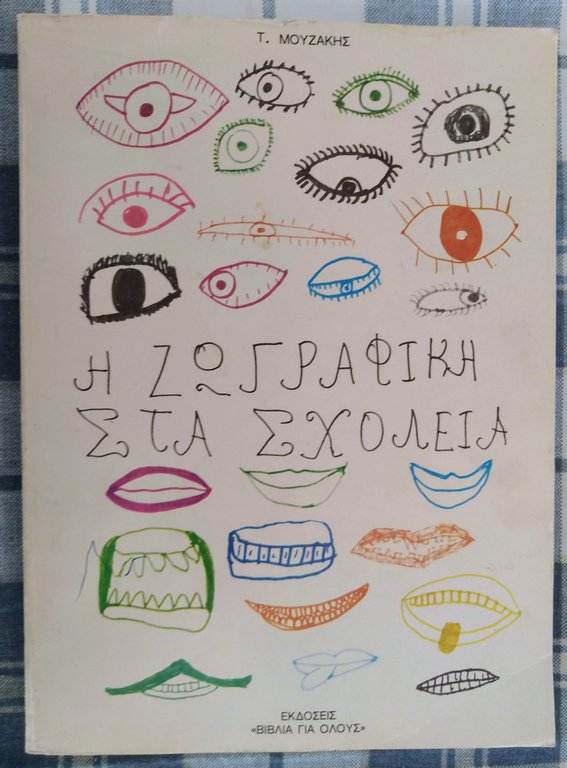 Τ. ΜΟΥΖΑΚΗΣ
Η ΖΩΓΡΑΦΙΚΗ
ΣΤΑ ΣΧΟΛΕΙΑ
ΕΚΔΟΣΕΙΣ
«ΒΙΒΛΙΑ ΓΙΑ ΟΛΟΥΣ»